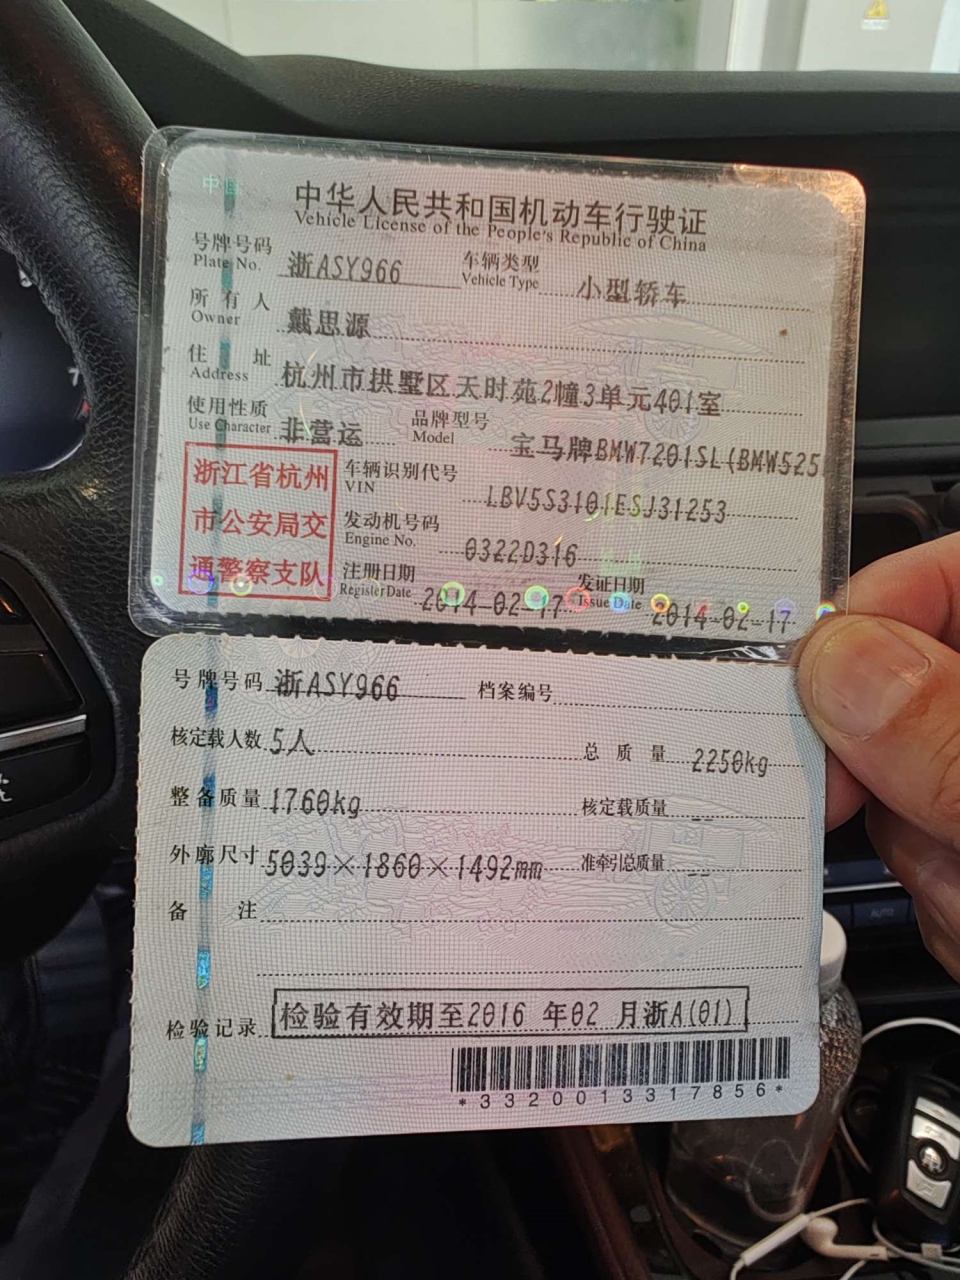 中华人民共和国机动车行驶证
Vehicle License of the People's Republic of China
号牌号码 浙ASY966 车辆类型 小型轿车
Plate No. Vehicle Type
所有人 戴思源
Owner
住址 杭州市拱墅区天时苑2幢3单元401室
Address
使用性质 非营运 品牌型号 宝马牌BMW7201SL(BMW525
Use Character Model
浙江省杭州
市公安局交
通警察支队
车辆识别代号 LBV5S3101ESJ31253
VIN
发动机号码 0322D316
Engine No.
注册日期 2014-02-17 发证日期 2014-02-17
Register Date Issue Date
号牌号码 浙ASY966 档案编号
核定载人数 5人 总质量 2250kg
整备质量 1760kg 核定载质量 --
外廓尺寸 5039×1860×1492mm 准牵引总质量 --
备注
检验记录 检验有效期至2016 年02 月浙A(01)
*3320013317856*
AUTO